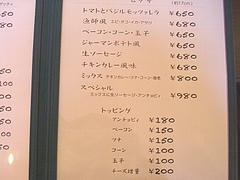 (約17cm)
トマトとバジルモッツァレラ ￥650
漁師風 エビ・タコ・イカ・アサリ ￥680
ベーコン・コーン・玉子 ￥650
ジャーマンポテト風 ￥650
生ソーセージ ￥680
チキンカレー風味 ￥680
ミックス チキンカレー・ツナ・コーン・海老 ￥800
スペシャル
ミックスに生ソーセージ・アンチョビィ ￥980
トッピング
アンチョビィ ￥180
ベーコン ￥150
ツナ ￥150
コーン ￥100
玉子 ￥100
チーズ増量 ￥200